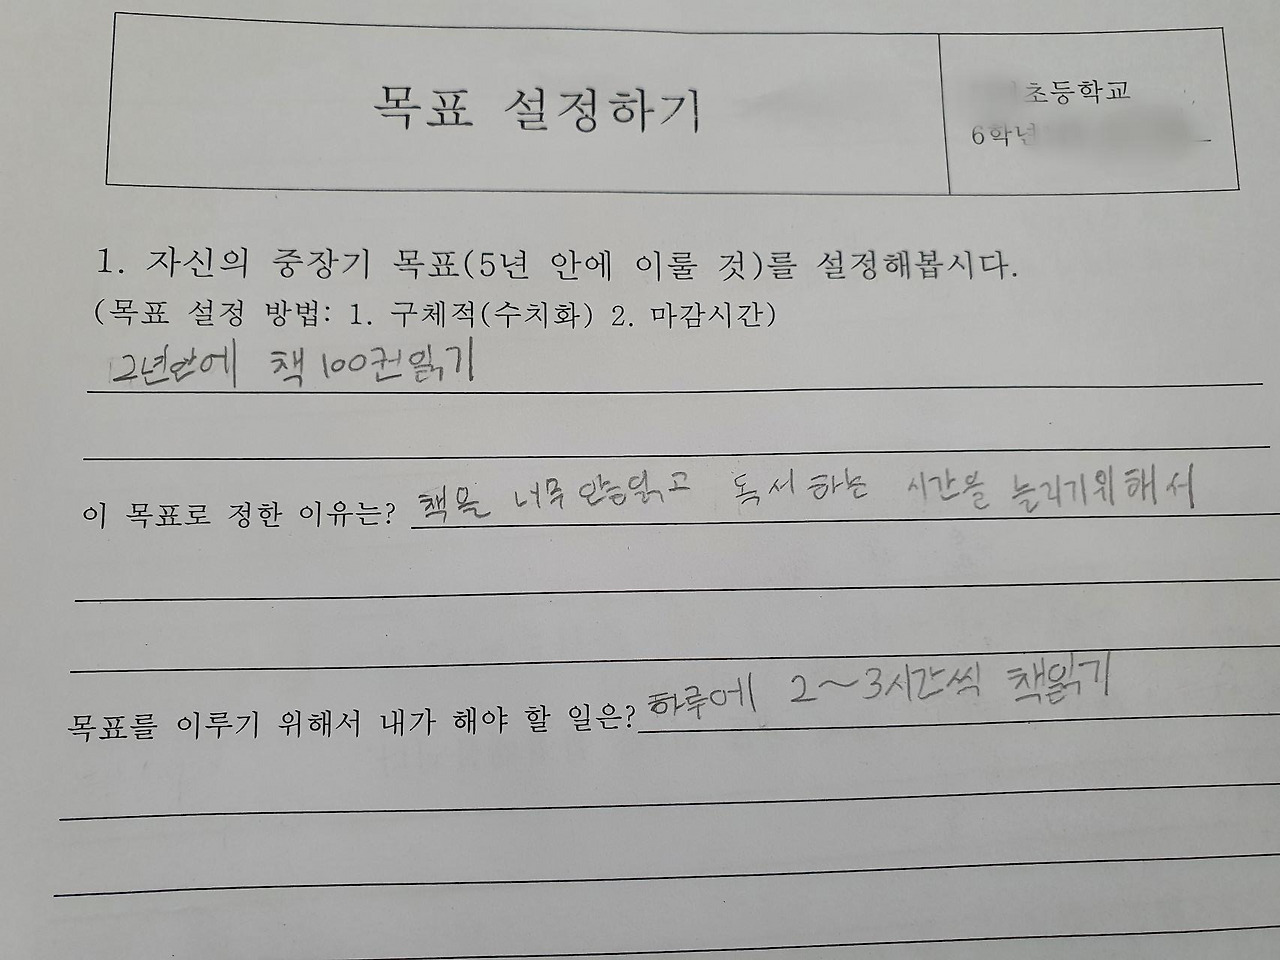 목표 설정하기
초등학교
6학년
1. 자신의 중장기 목표(5년 안에 이룰 것)를 설정해봅시다.
(목표 설정 방법: 1. 구체적(수치화) 2. 마감시간)
2년안에 책 100권읽기
이 목표로 정한 이유는? 책을 너무 안읽고 독서 하는 시간을 늘리기위해서
목표를 이루기 위해서 내가 해야 할 일은? 하루에 2~3시간씩 책읽기